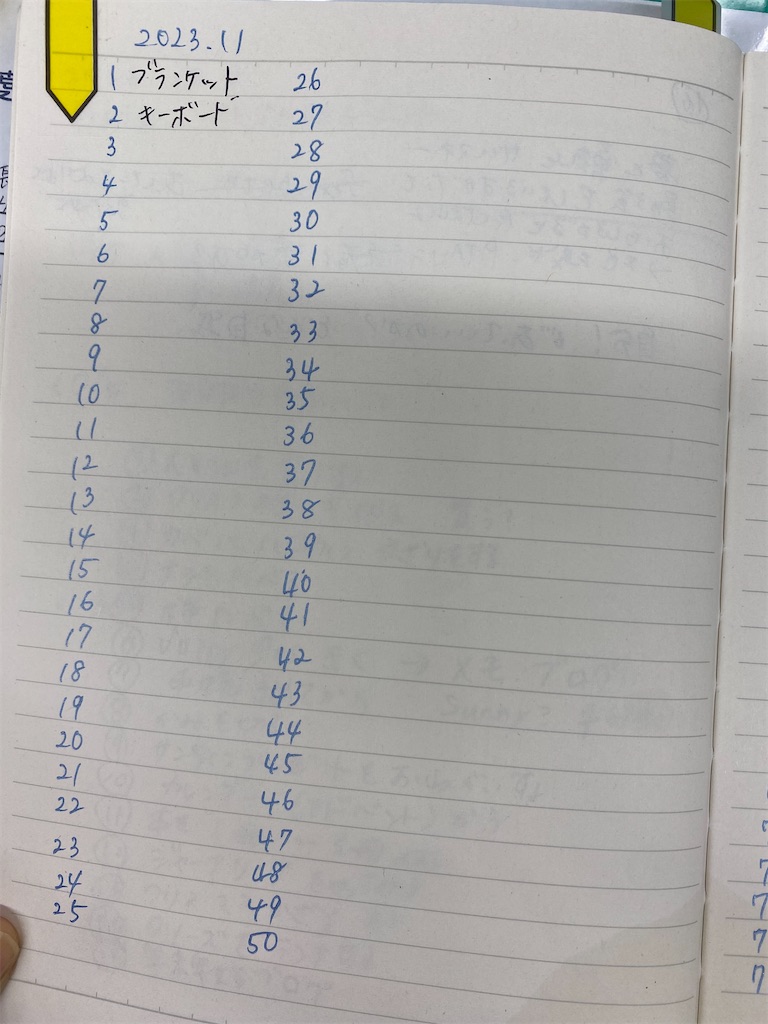 2023.11
1 ブランケット 26
2 キーボード 27
3 28
4 29
5 30
6 31
7 32
8 33
9 34
10 35
11 36
12 37
13 38
14 39
15 40
16 41
17 42
18 43
19 44
20 45
21 46
22 47
23 48
24 49
25 50